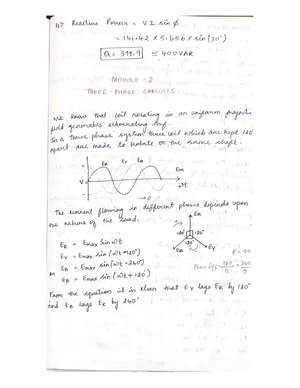 47 Reactive Power = V I sin φ
= 141.42 × 5.656 × sin(30°)
Q = 399.9 ≃ 400 VAR
MODULE - 2
THREE PHASE CIRCUITS
We know that coil rotating in an uniform magnetic
field generates alternating emf.
In a three phase system three coil which are kept 120°
apart are made to rotate on the same shaft.
ER EY EB
V
Em
ωt
The current flowing in different phases depends upon
the nature of the load.
ER
120° 120°
120°
EB EY
ER = Emax Sin ωt
EY = Emax sin (ωt - 120°)
EB = Emax sin (ωt - 240°)
or
EB = Emax sin (ωt + 120°)
From the equation it is clear that EY lags ER by 120°
and EB lags ER by 240°